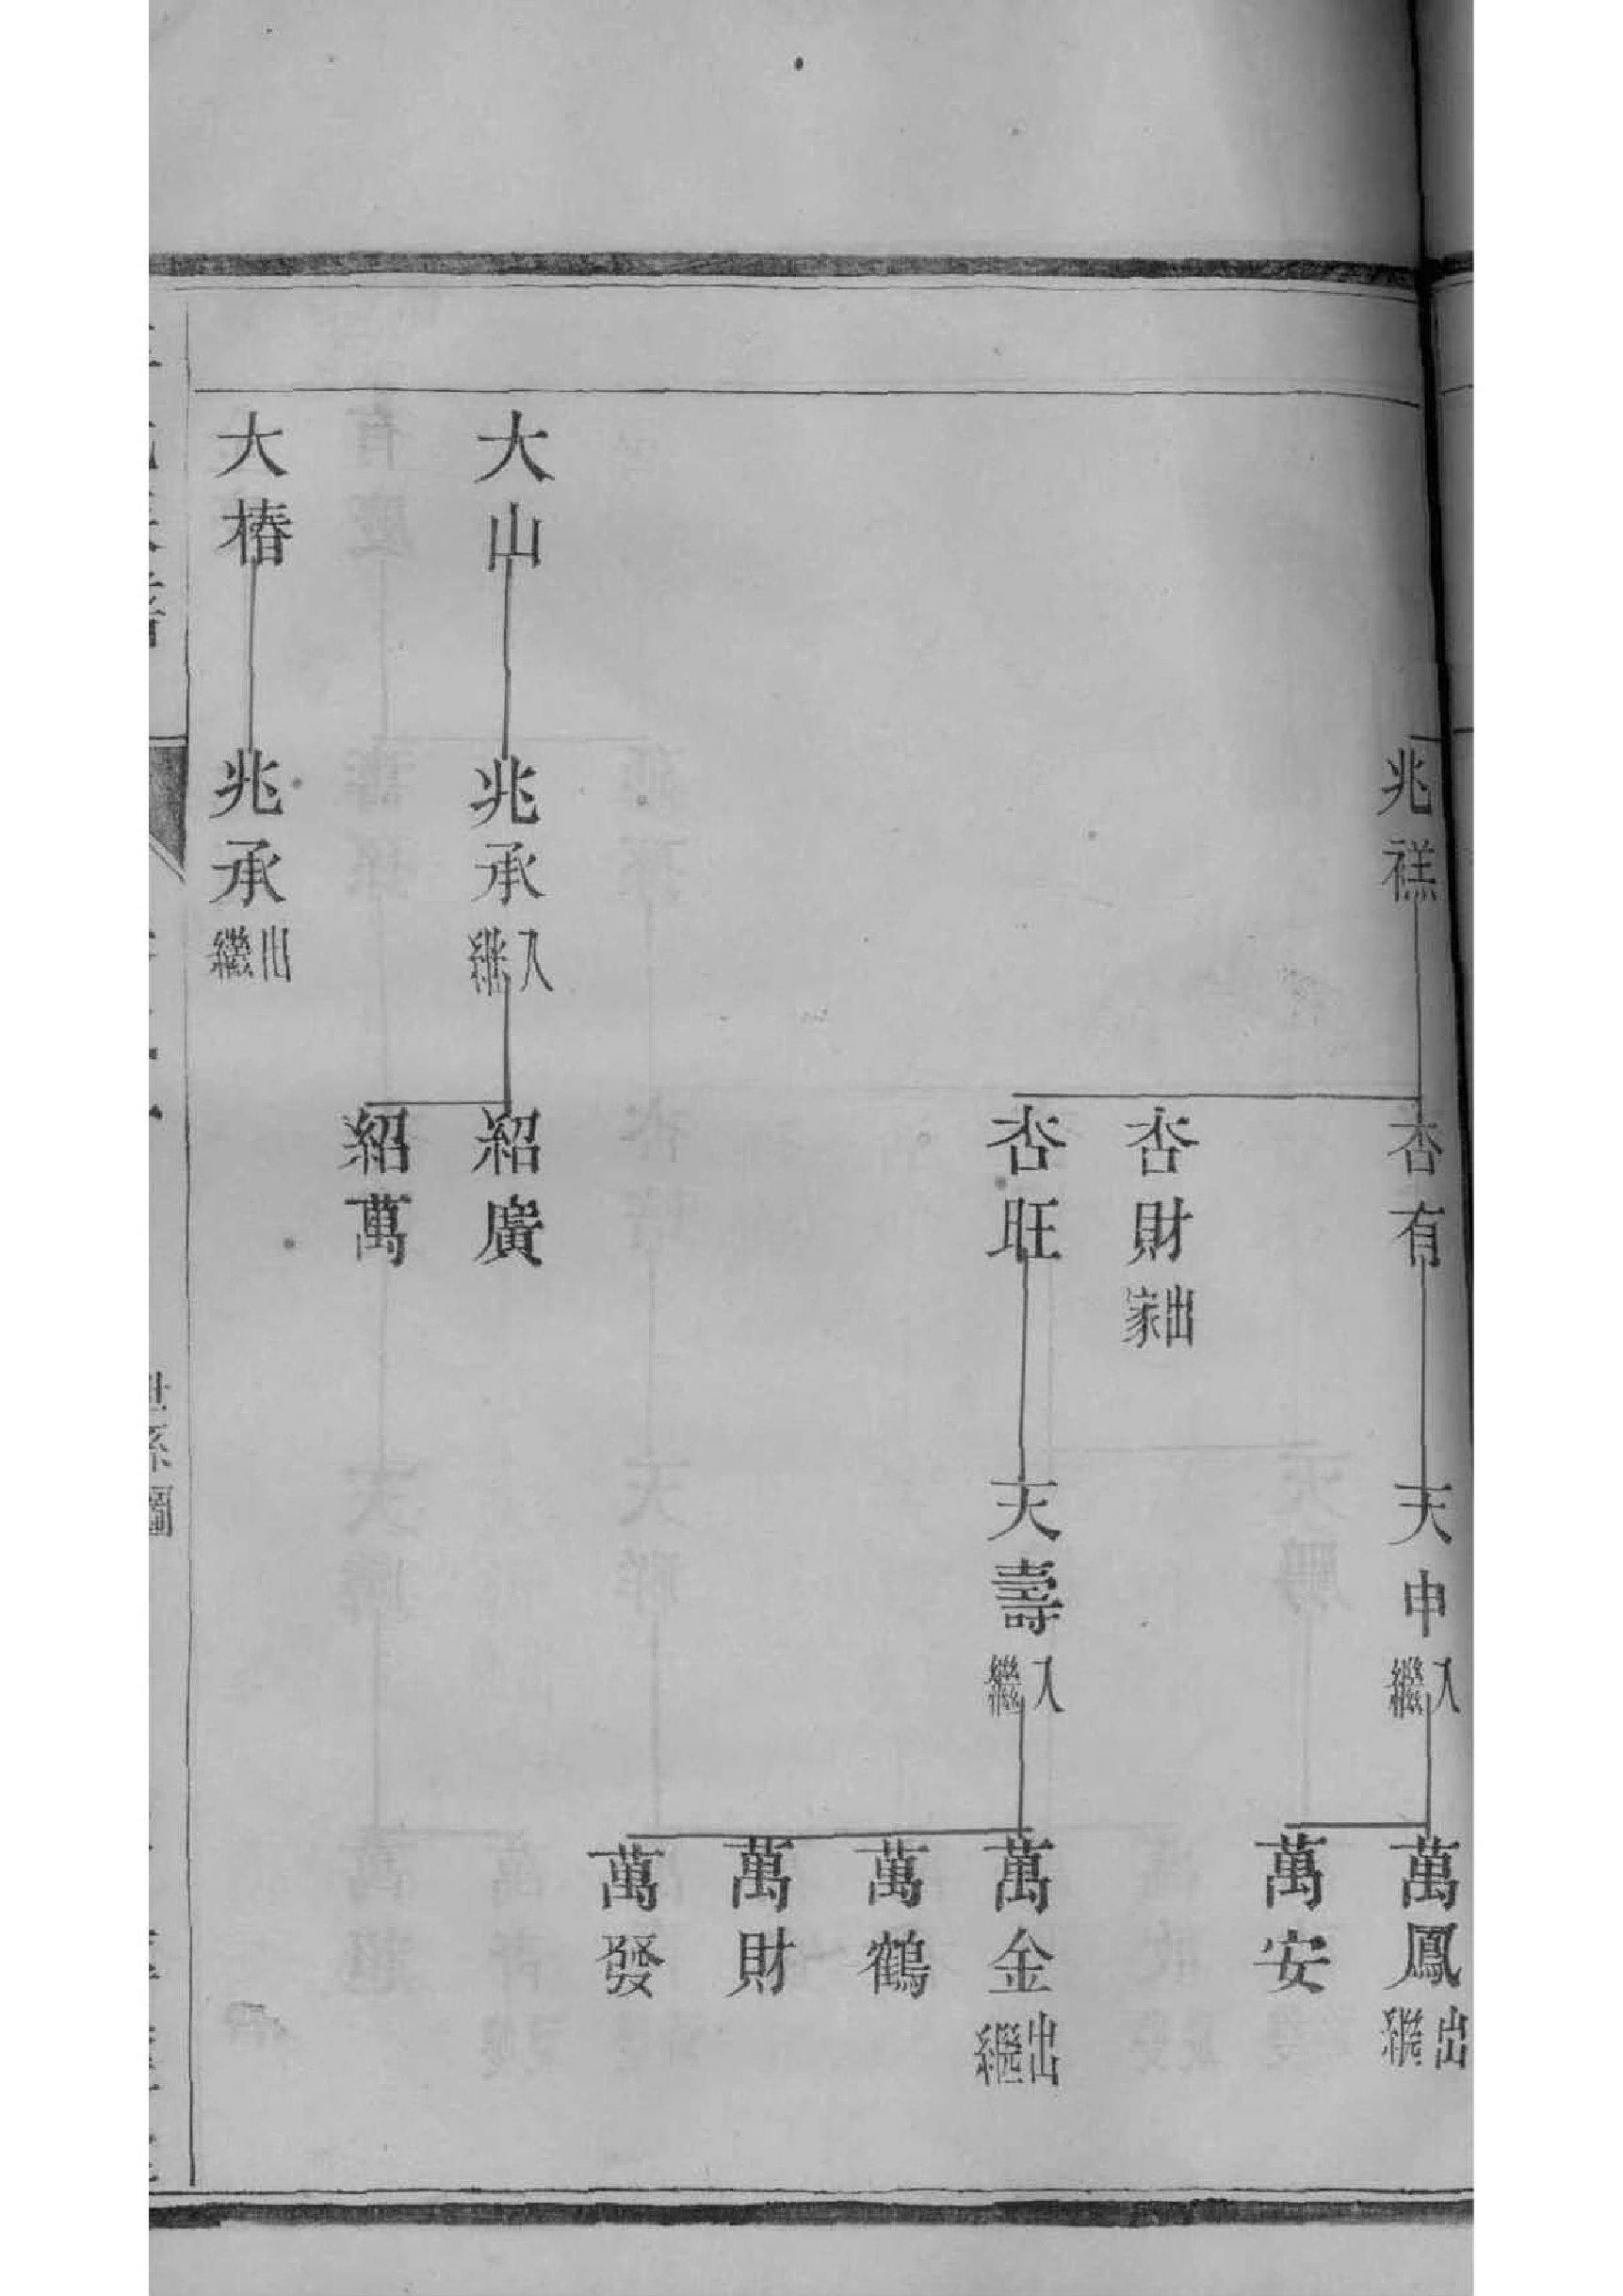 兆禚
杏有
天申入繼
萬鳳出繼
萬安
杏財出家
杏旺
天壽入繼
萬金出繼
萬鶴
萬財
萬發
大山
兆承入繼
紹廣
紹萬
大椿
兆承出繼
世系圖